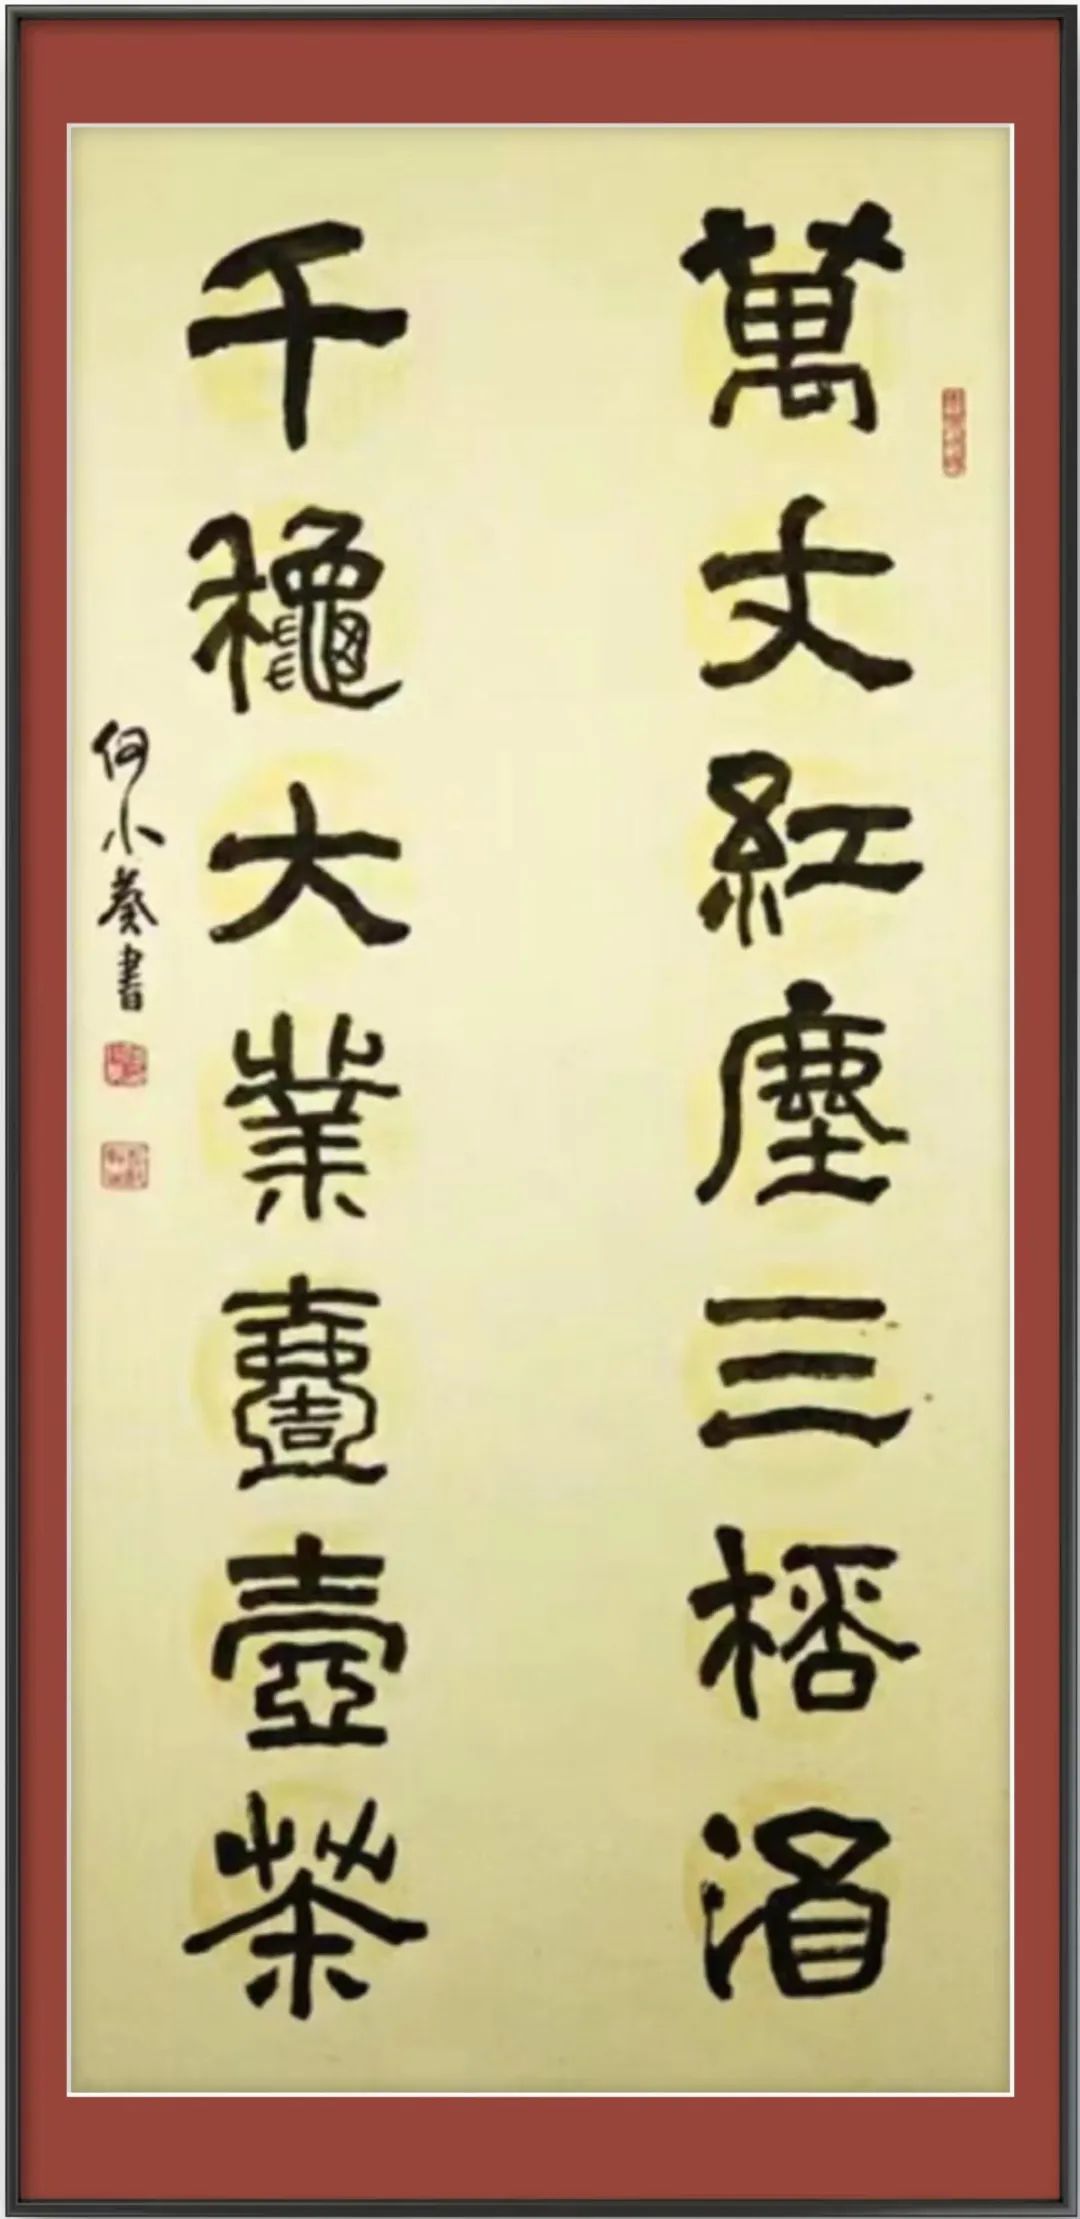 萬丈紅塵三桮酒
千龝大業壹壺茶
何小葵書